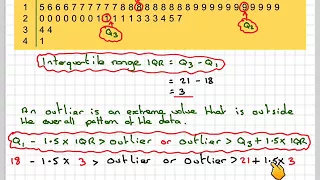 1 5 6 6 6 7 7 7 7 7 7 8 8 8 8 8 8 8 9 9 9 9 9 9 9 9 9 9 9
2 0 0 0 0 0 0 0 1 1 1 1 3 3 3 4 5 7
3 Q3 Q2
4 4
4 1
Interquartile range IQR = Q3 - Q1
= 21 - 18
= 3
An outlier is an extreme value that is outside
the overall pattern of the data.
Q1 - 1.5 x IQR > outlier or outlier > Q3 + 1.5 x IQR
18 - 1.5 x 3 > outlier or outlier > 21 + 1.5 x 3